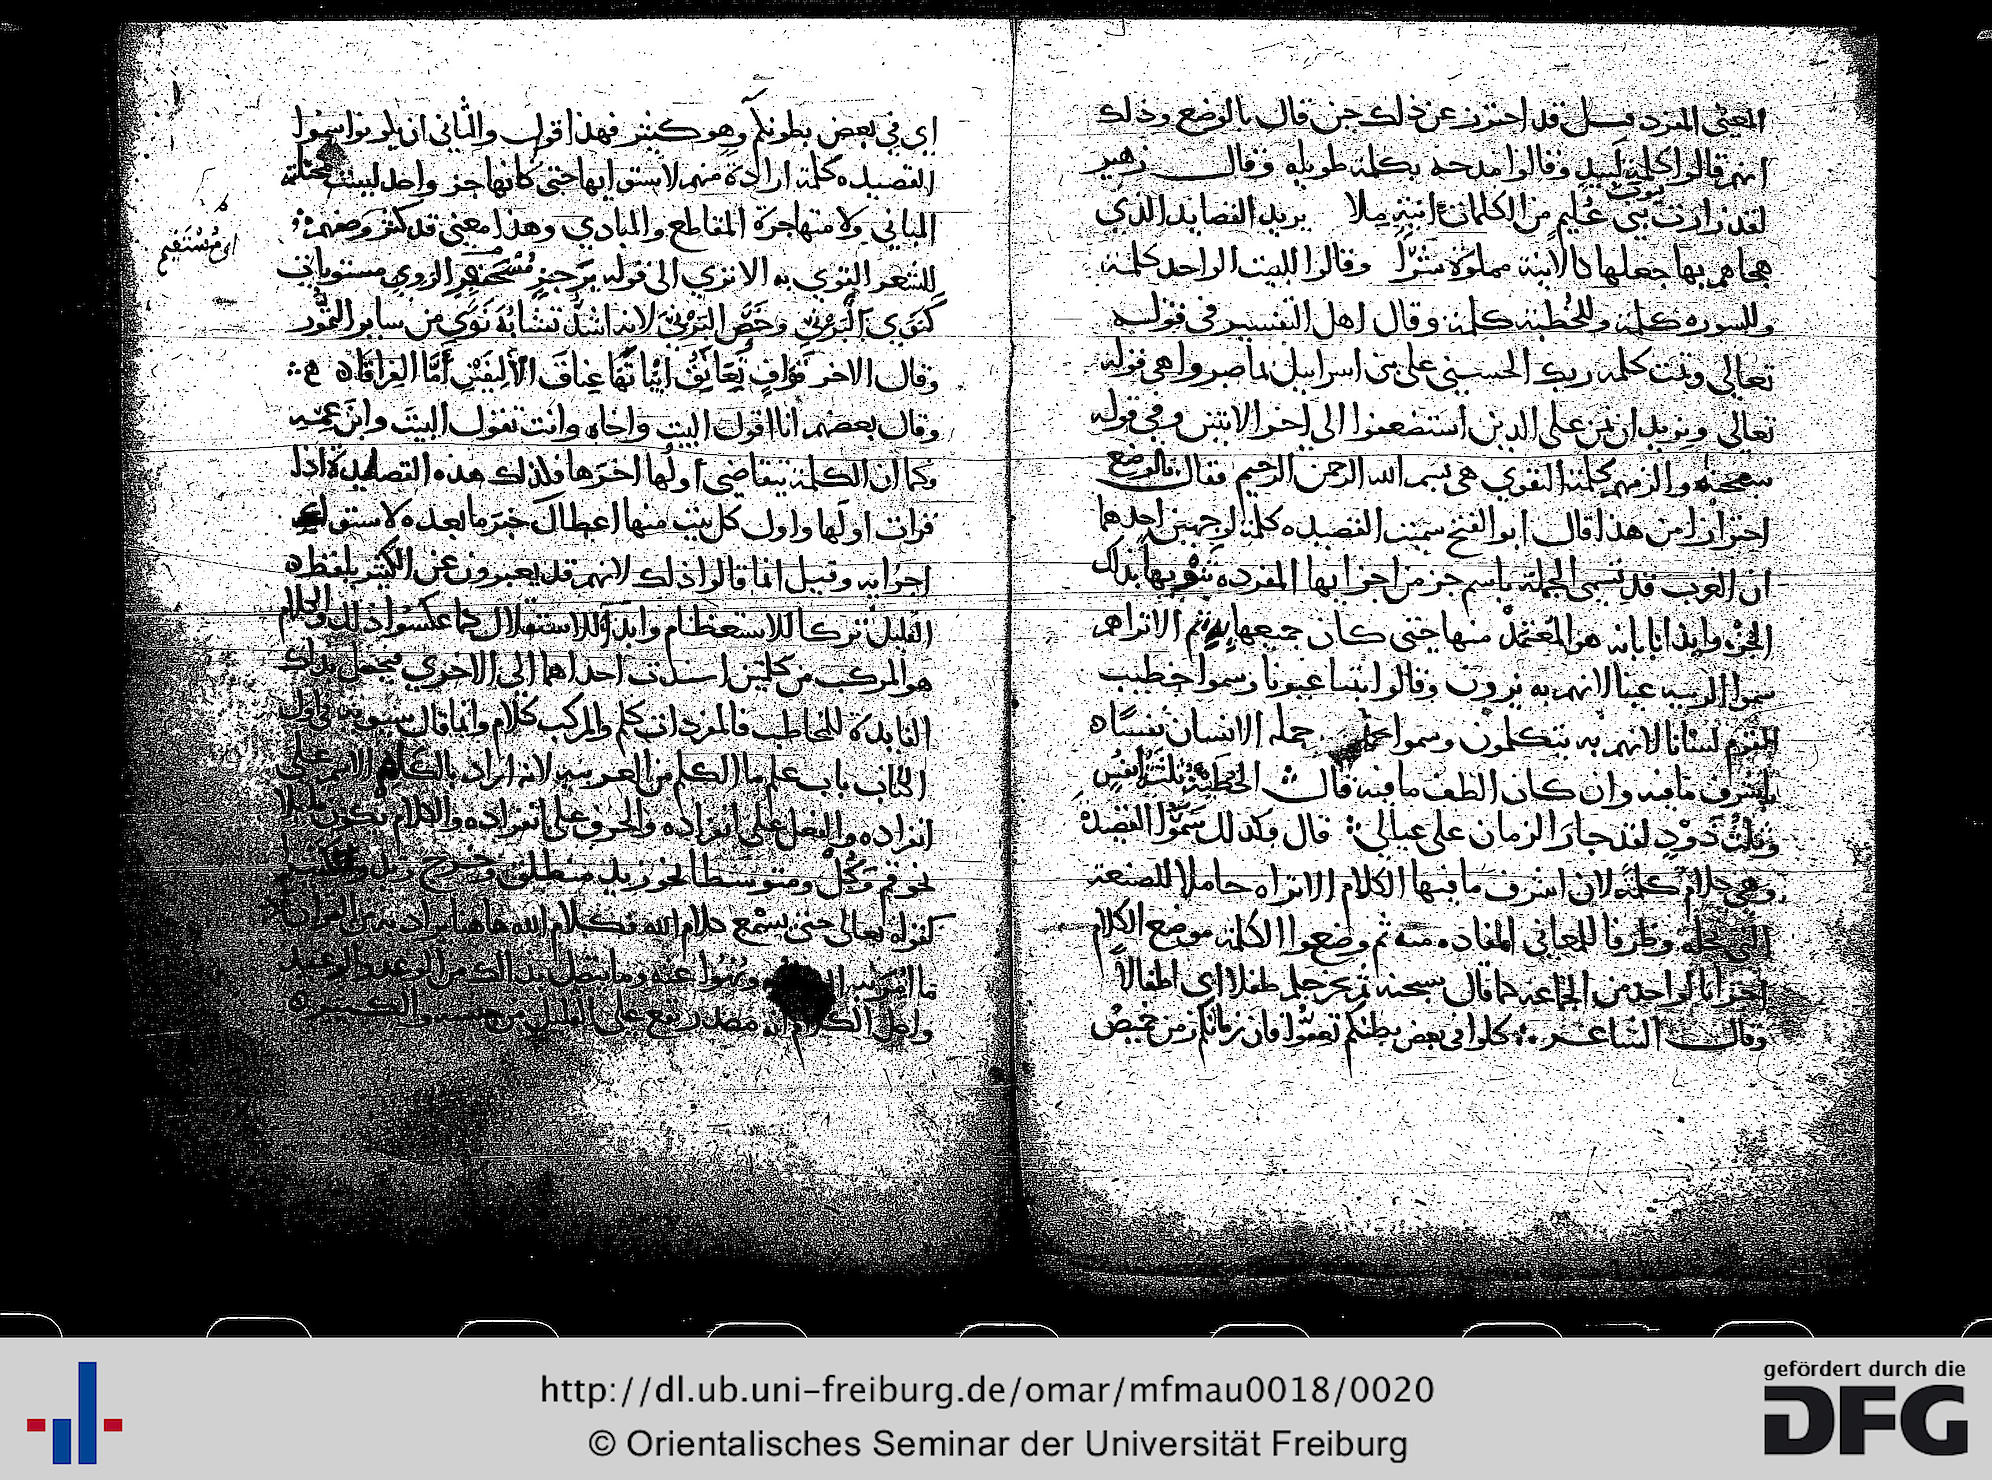 المعنى المفرد قيل قد احترز عن ذلك حين قال بالوضع وذلك
انهم قالوا كلمة لبيد وقالوا مدحه بكلمة طويله وقال زهير
لقد زارت بيوت بني عُليم من الكلمان انية ملا يريد القصايد الذي
هجاهم بها جعلها كالانية مملوة شرًّا وقالوا للبيت الواحد كلمة
وللسوره كلمة وللخُطبة كلمة وقال اهل التفسير في قوله
تعالى وتمت كلمه ربك الحسنى على بني اسرايل بما صبروا هي قوله
تعالى ونريد ان نمن على الذين استضعفوا الى اخر الايتين وفي قوله
سبحنه والزمهم كلمة التقوي هي بسم الله الرحمن الرحيم فقال بالوضع
احترازا من هذا قال ابو الفتح سميت القصيده كلمة لوجهين احدهما
ان العرب قد تسمى الجملة باسم جز من اجزايها المفرده تنويها بذلك
الجزء وايذانا بانه هو المعتمد منها حتى كان جميعها الاتراهم
سموا الربيه عينا لانهم به يرون وقالوا بثنا عيونا وسموا خطيب
القوم لسانا لانهم به يتكلمون وسموا جمله الانسان نفسًا
باشرف ما فيه وان كان الطف ما فيه قال الحطيئة ثلثة انفس
وثلث ذود لقد جار الزمان على عيالي قال وكذلك سموا القصيدة
وهي كلام كلمة لان اشرف ما فيها الكلام الاتراه حاملا للصنعة
التي تحله وظرفا للمعاني المفاده منه ثم وضعوا الكلمة موضع الكلام
اجزا بالواحد من الجماعة كما قال سبحنه ثم يخرجكم طفلا اي اطفالا
وقال الشاعر كلوا في بعض بطنكم تعفوا فان زمانكم زمن خميص
اي في بعض بطونكم وهو كثير فهذا قول والثاني ان يكونوا سموا
القصيده كلمة ارادة منهم لاستوايها حتى كانها جز واحد ليست مختلفة
المباني ولا متهاجرة المقاطع والمبادي وهذا معنى قد كثر وصفهم
للشعر القوي به الا تري الى قوله برجز مُسْحنفر الروي مستويات
اي مُسْتقيم
كنوي البَرْني وخَصَّ البَرْني لانه اشد تشابه نَوَي من ساير التمور
وقال الاخر قوافٍ تعانق ابياتها عناق الاليفين امّا الفراقا
وقال بعضهم انا اقول البيت واخاه وانت تقول البيت وابن عمه
وكما ان الكلمة يتقاضى اولها اخرها فلذلك هذه القصيدة اذا
قرات اولها واول كل بيت منها اعطاك خبر ما بعده لاستوا
اجزايه وقيل انما قالوا ذلك لانهم قد يعبرون عن الكثير بلفظ
القليل تركا للاستعظام وابداء للاستقلال كما عكسوا ذلك والكلام
هو المركب من كلمتين اسندت احداهما الى الاخري فيحصل بذلك
الفايدة للمخاطب فالمفردات كلم والمركب كلام وانما قال سيبويه في اول
الكتاب باب علم ما الكلم من العربيه لانه اراد بالكلم الاسم على
انفراده والفعل على انفراده والحرف على انفراده والكلام يكون
نحو قم وكُلْ ومتوسطا نحو زيد منطلق وخرج زيد
كقوله تعالى حتى يسمع كلام الله فكلام الله هاهنا يراد به القران
ما امروا به ونهوا عنه وما يتصل بذلك من الوعد والوعيد
واصل الكلام انه مصدر يقع على القليل من جنسه والكثير
http://dl.ub.uni-freiburg.de/omar/mfmau0018/0020
© Orientalisches Seminar der Universität Freiburg
gefördert durch die
DFG